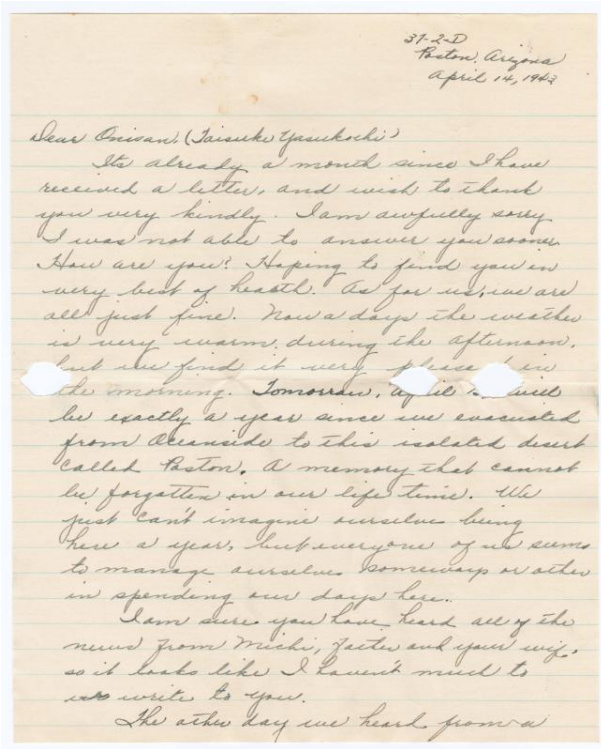 37-2-D
Poston, Arizona
April 14, 1943
Dear Onisan, (Taisuke Yasukochi)
Its already a month since I have
received a letter, and wish to thank
you very kindly. I am awfully sorry
I was not able to answer you sooner.
How are you? Hoping to find you in
very best of hearth. As for us, we are
all just fine. Now a days the weather
is very warm during the afternoon,
but we find it very in
the morning. Tomorrow, April will
be exactly a year since we evacuated
from Oceanside to this isolated desert
called Poston. A memory that cannot
be forgotten in our life time. We
just can't imagine ourselves being
here a year, but everyone of us seems
to manage ourselves someways or other
in spending our days here.
I am sure you have heard all of the
news from Michi, and your wife,
so it looks like I haven't much to
write to you.
The other day we heard from a